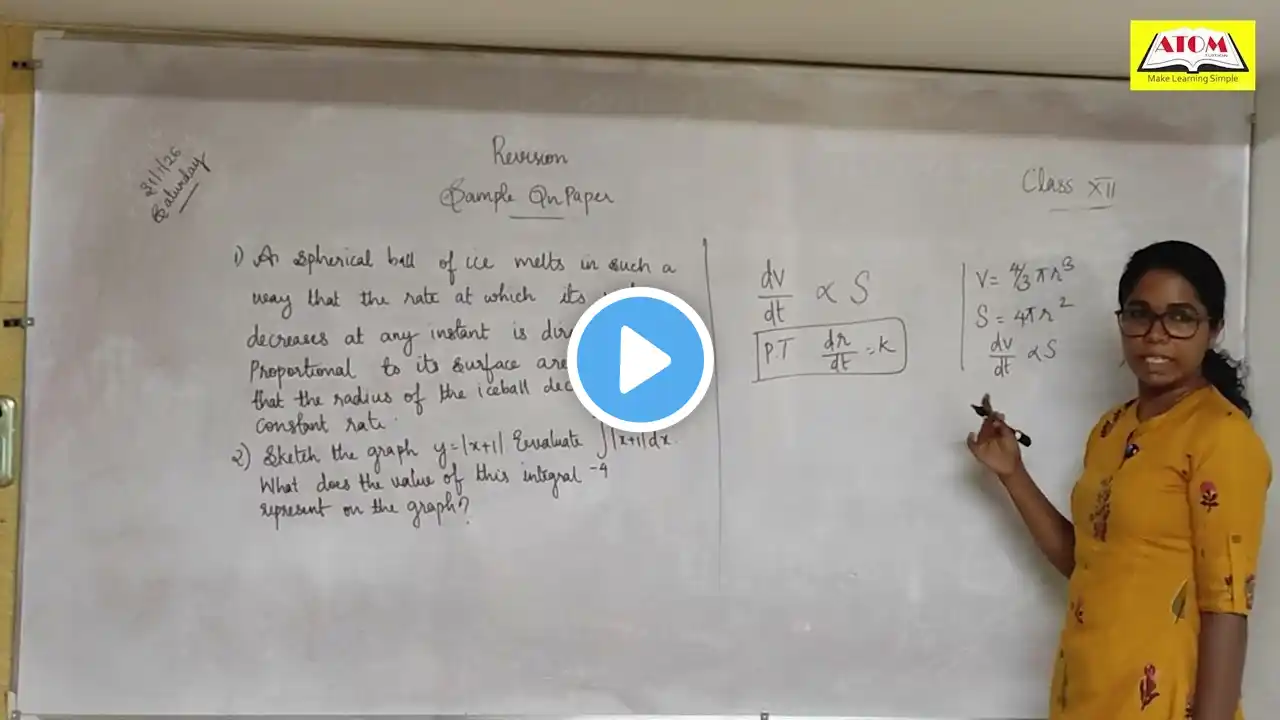 ATOM
TUITION
Make Learning Simple
31/1/26
Saturday
Revision
Sample Qn Paper
Class XII
1) A spherical ball of ice melts in such a
way that the rate at which its
decreases at any instant is
Proportional to its surface
that the radius of the iceball
constant rate.
2) Sketch the graph y=|x+1|. Evaluate ∫|x+1|dx.
-4
What does the value of this integral
represent on the graph?
dv/dt ∝ S
P.T dr/dt = k
V = 4/3 πr³
S = 4πr²
dv/dt ∝ S